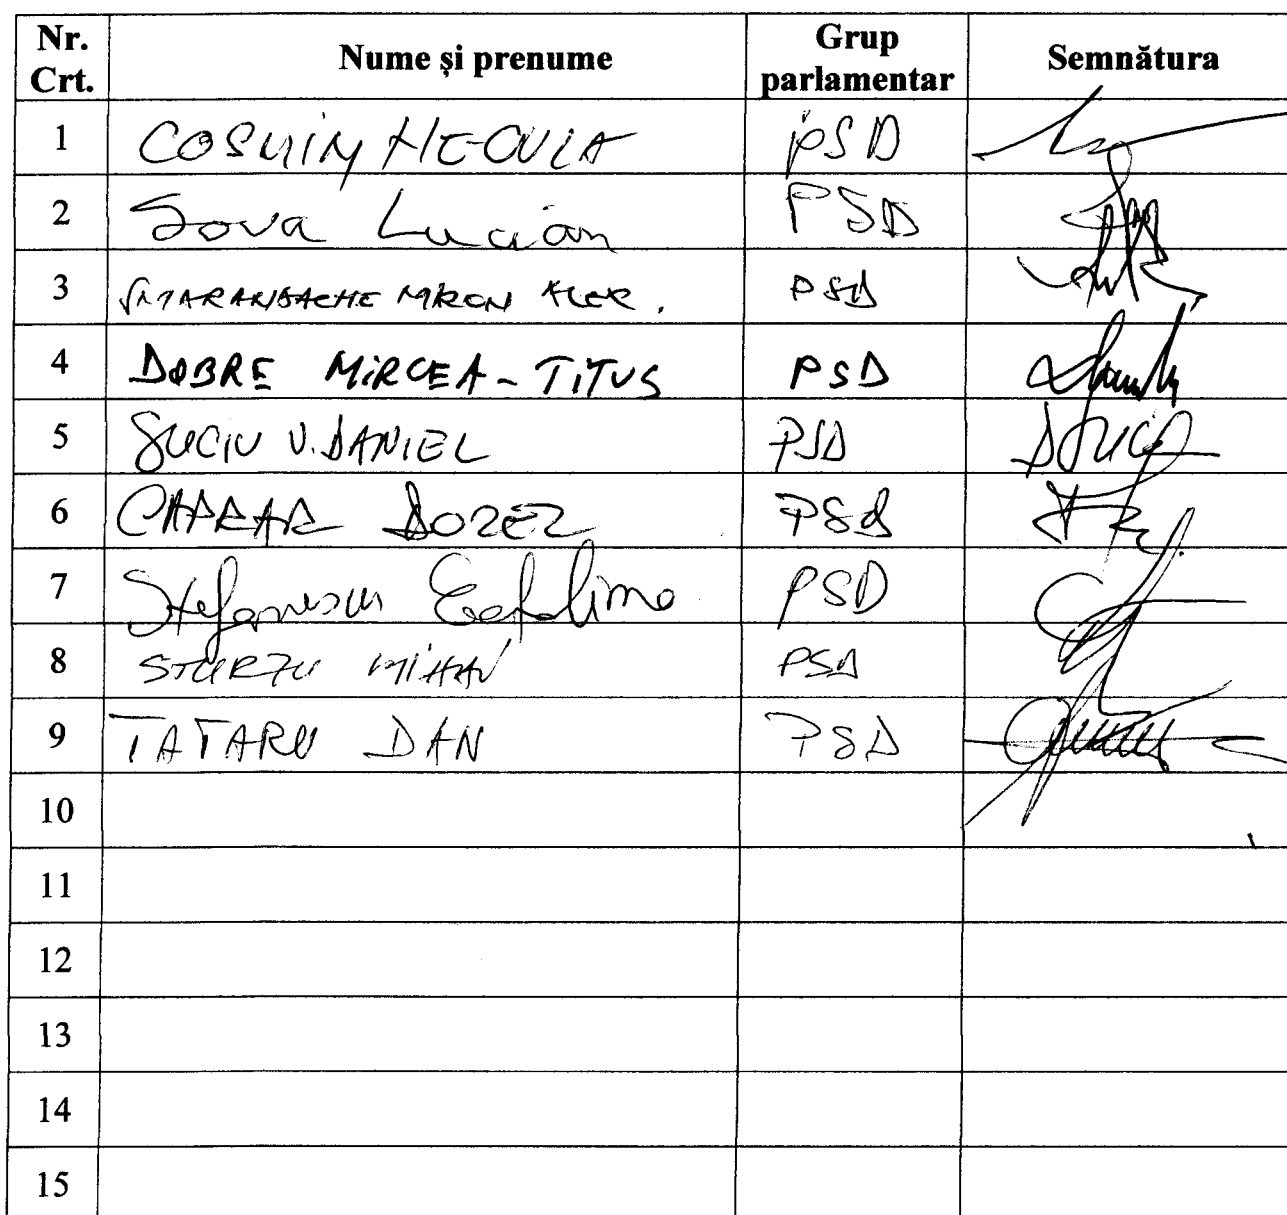 Nr. Crt. Nume și prenume Grup parlamentar Semnătura
1 COSMIN NECULA PSD
2 Sova Lucian PSD
3 SMARANDACHE MIRON ALEX. PSD
4 DOBRE MIRCEA-TITUS PSD
5 SUCIU V. DANIEL PSD
6 CAPRAR DOREL PSD
7 Stefanescu PSD
8 STURZU MIHAI PSD
9 TATARU DAN PSD
10
11
12
13
14
15